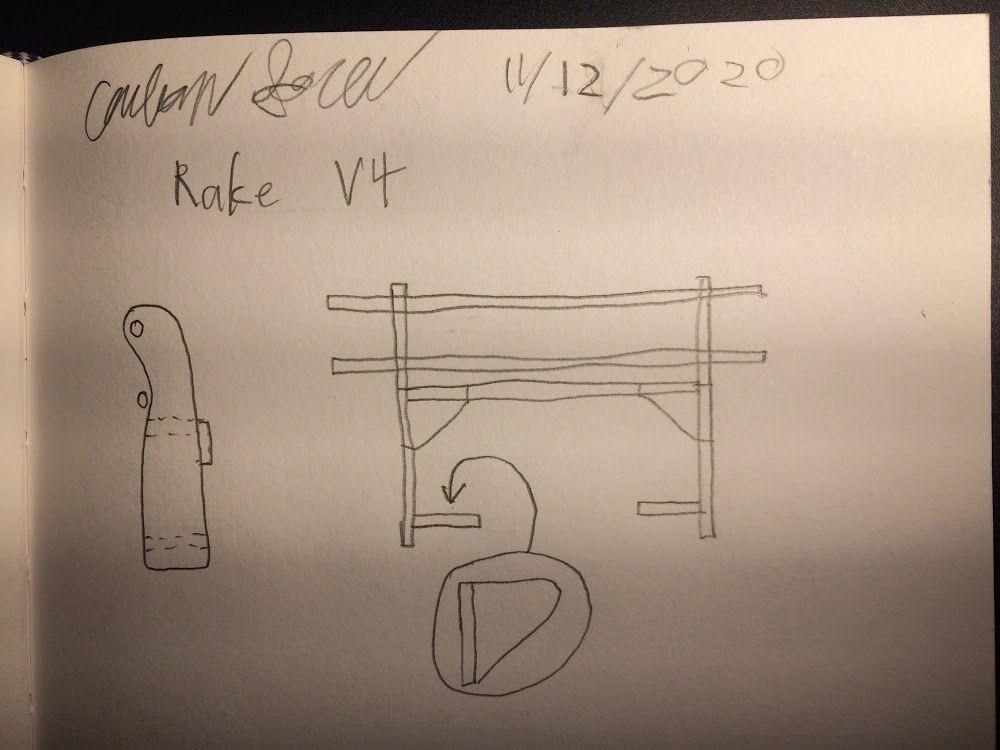 11/12/2020
Rake V4